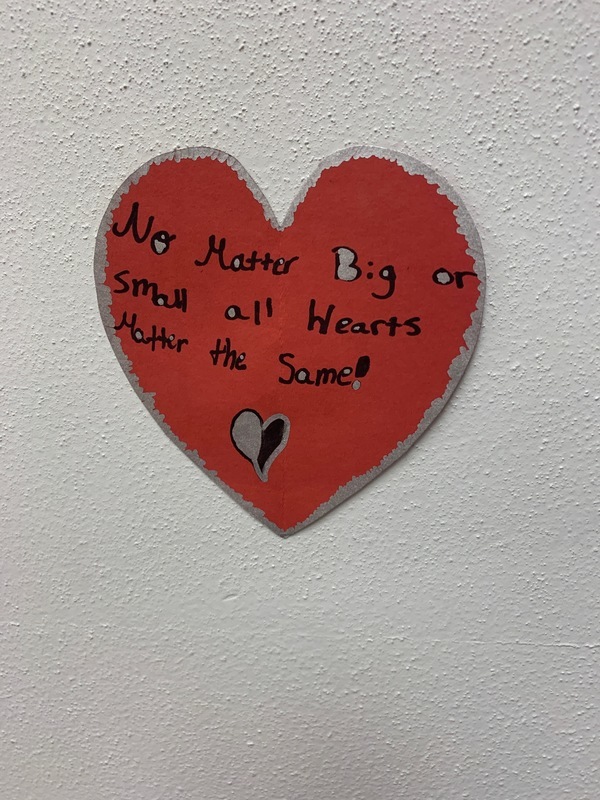 No Matter Big or
small all Hearts
Matter the Same!